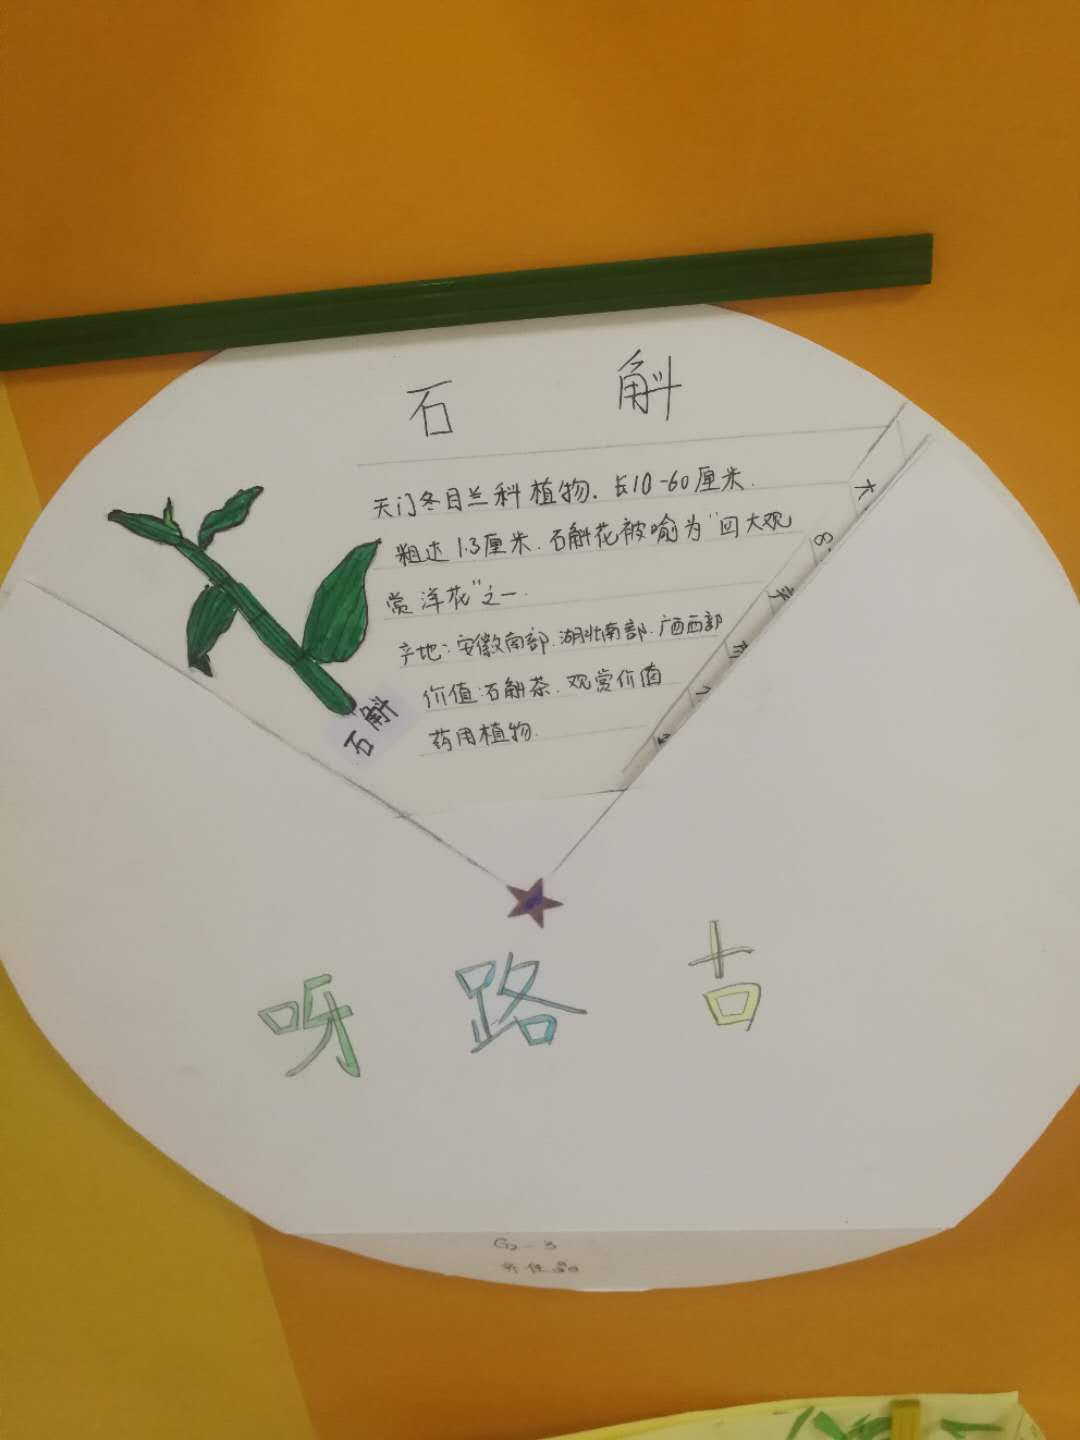 石 斛
天门冬目兰科植物. 长10-60厘米.
粗达1.3厘米. 石斛花被喻为“四大观
赏洋花”之一.
产地: 安徽南部. 湖北南部. 广西西部
价值: 石斛茶. 观赏价值
药用植物.
石斛
呀 路 古
G2-3